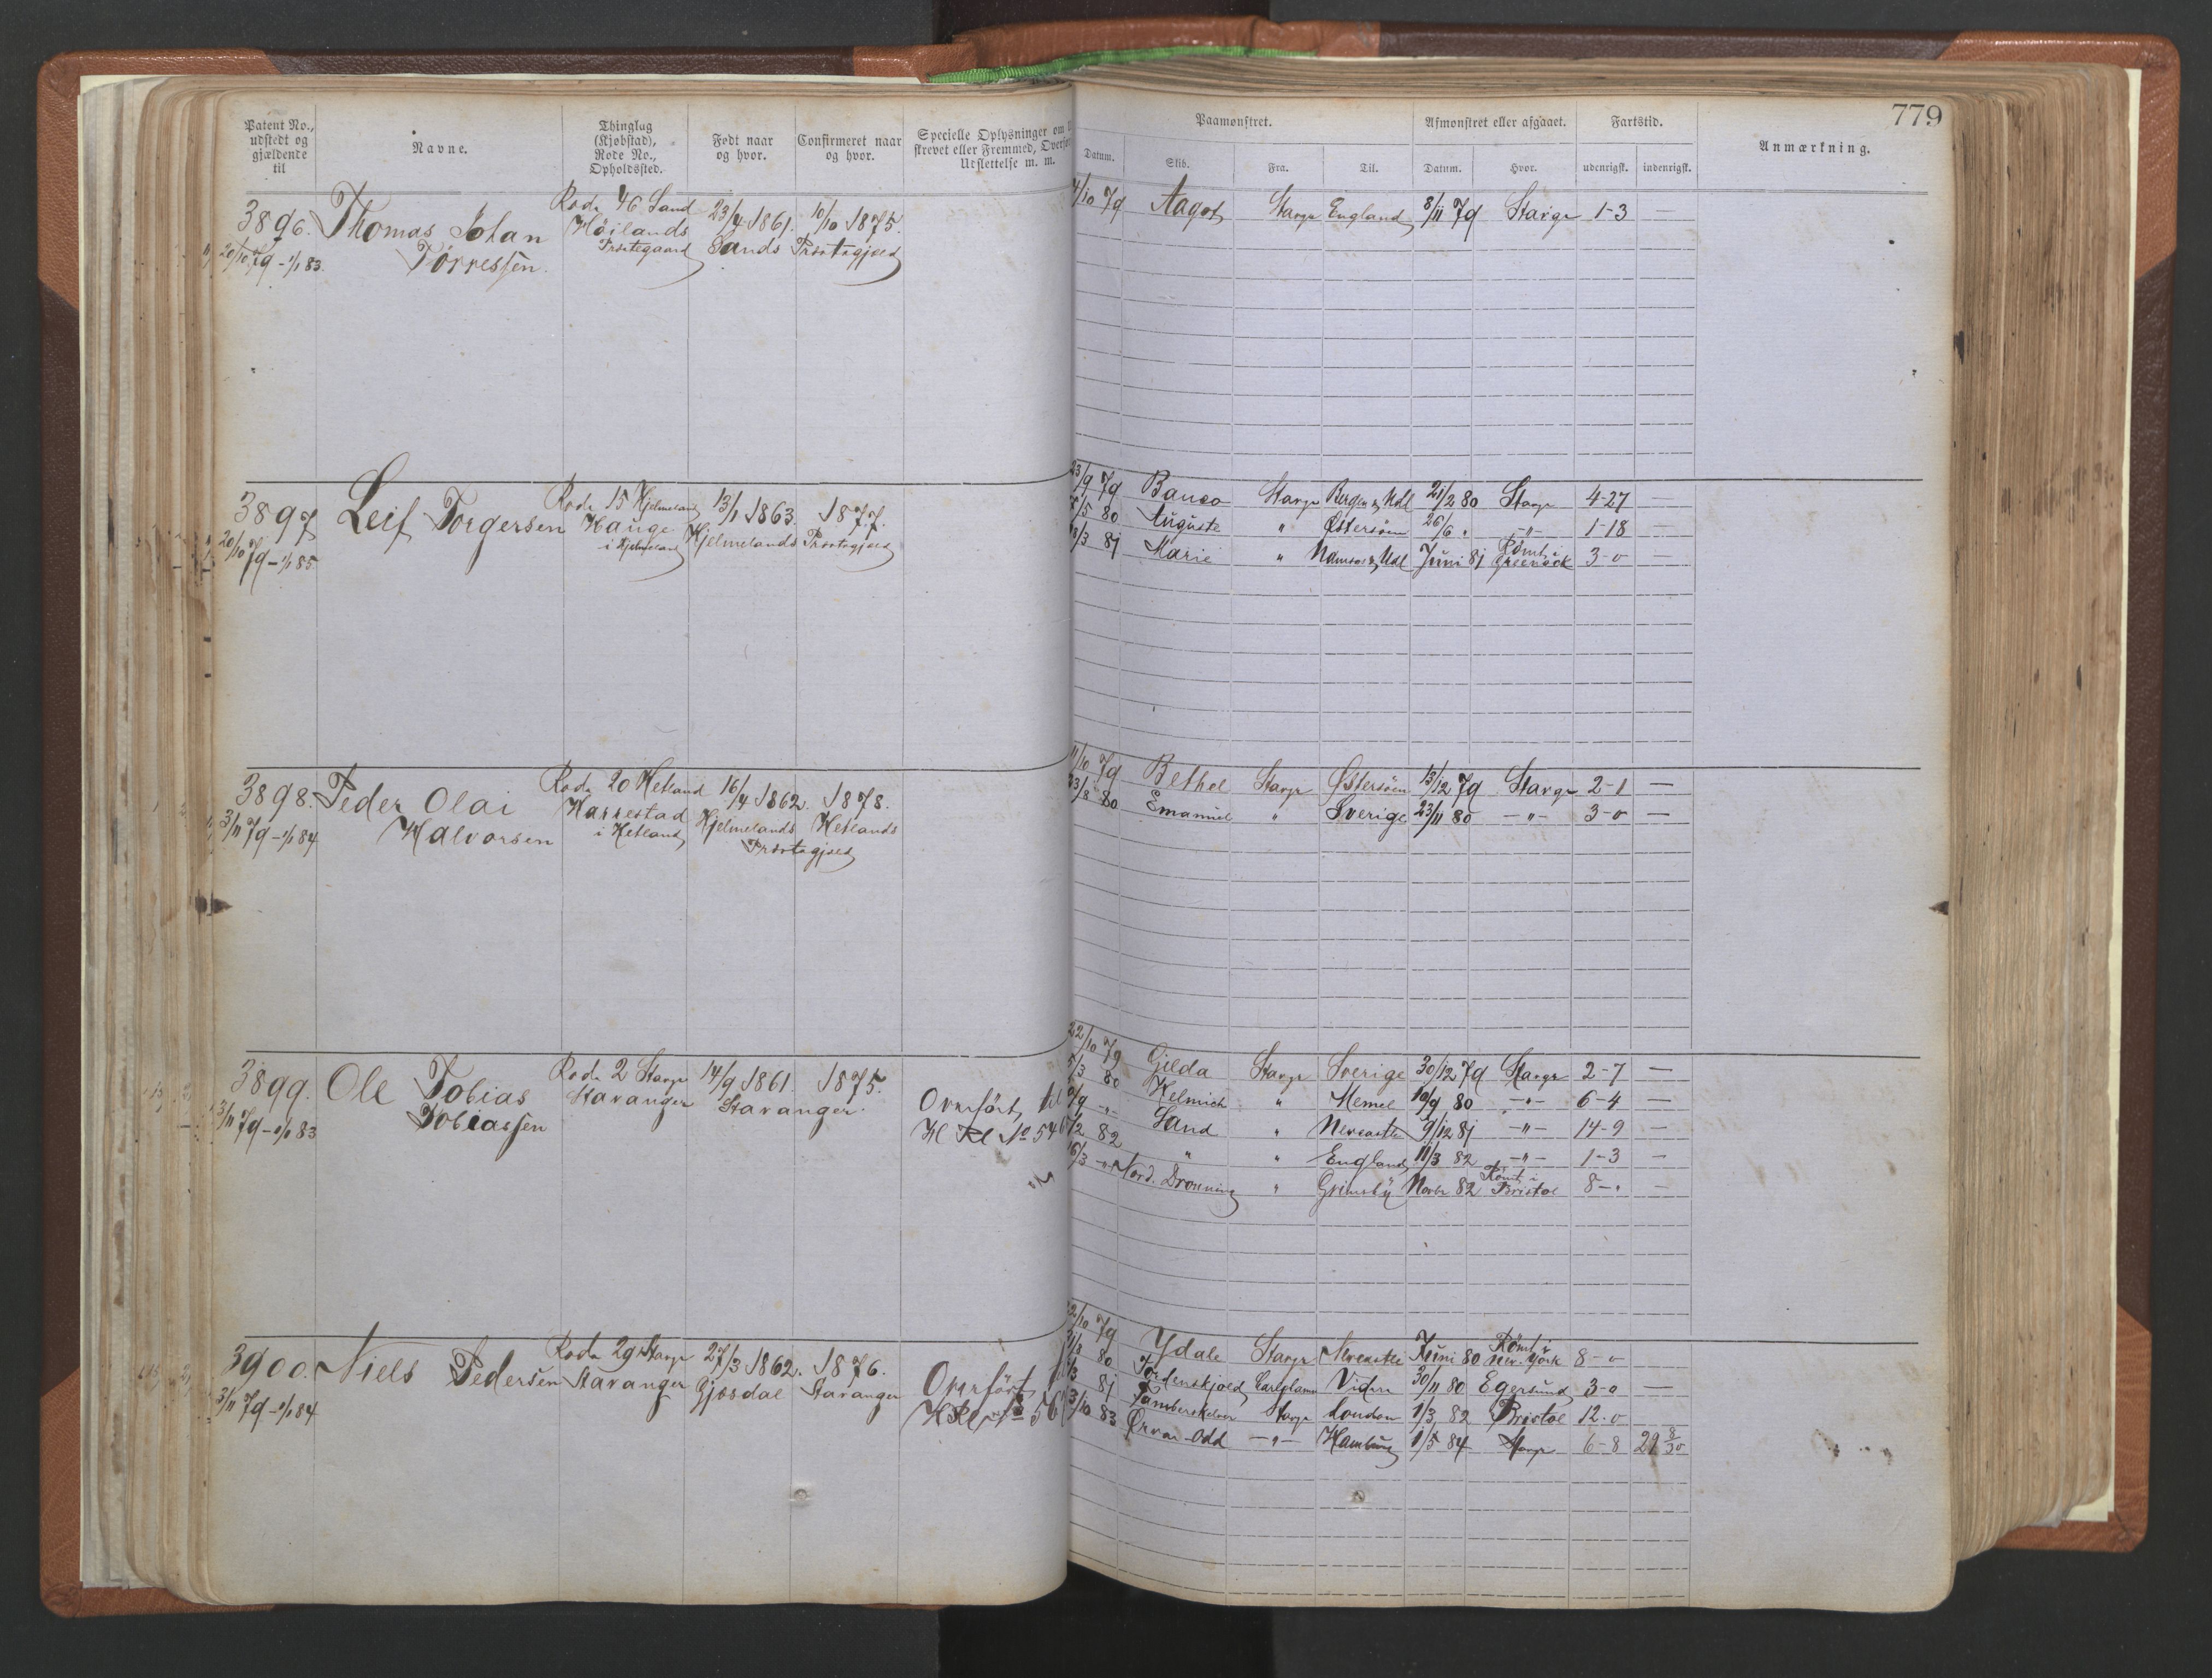 779
Patent No., udstedt og gjældende til
Navne.
Thinglag (Kjøbstad), Rode No., Opholdssted.
Født naar og hvor.
Confirmeret naar og hvor.
Specielle Oplysninger om
strevet eller Fremmed, Overfør
Udslettelse m. m.
Paamønstret.
Datum.
Skib.
Fra.
Til.
Afmønstret eller afgaaet.
Datum.
Hvor.
Fartstid.
udenrigsk.
indenrigsk.
Anmærkning.
3896. Thomas Johan
Törressen.
20/10 79 - 1/1 83.
Rode 46 Sand
Höilands
Præstegaard
23/4 1861.
Sands
10/10 1875.
Præstegjæld
4/10 79 Aagot Stavgr England 8/11 79 Stavgr 1-3 —
3897 Leif Torgersen
20/10 79 - 1/1 85
Rode 15 Hjelmeland
Hauge
i Hjelmeland
13/1 1863.
Hjelmelands
1877.
Præstegjæld
23/9 79 Banco Stavgr Bergen & Udl 21/2 80 Stavgr 4-27 —
/5 80 Auguste " Østersøen 26/6 " —"— 1-18 —
/3 81 Marie " Namsos & Udl Juni 81 Rømt i Greenock 3-0 —
3898. Peder Olai
Halvorsen
3/11 79 - 1/1 84
Rode 20 Hetland
Harrestad
i Hetland
16/4 1862.
Hjelmelands
1878.
Hetlands
Præstegjæld
11/10 79 Bethel Stavgr Østersøen 13/12 79 Stavgr 2-1 —
/8 80 Emanuel " Sverige 23/11 80 —"— 3-0 —
3899. Ole Tobias
Tobiassen
3/11 79 - 1/1 83
Rode 2 Stavgr
Stavanger
14/9 1861.
1875.
Stavanger.
Overført til
H Kl No 546
22/10 79 Gilda Stavgr Sverige 30/12 79 Stavgr 2-7 —
5/3 80 Helmich " Memel 10/9 80 —"— 6-4 —
/9 —"— Sand " Newcastle 9/12 81 —"— 14-9 —
/2 82 " " England 11/3 82 —"— 1-3 —
16/3 —"— Nord. Dronning " Grimsby Novbr 82 Rømt i Bristol 8-" —
3900. Niels Pedersen
3/11 79 - 1/1 84
Rode 29 Stavgr
Stavanger
27/3 1862.
Gjæsdal
1876.
Stavanger
Overført
H Kl No 56
22/10 79 Ydale Stavgr Newcastle Juni 80 Rømt i New-York 8-0 —
/8 80 Tordenskjold Viden 30/11 80 Egersund 3-0 —
/3 81 Stavgr London 1/3 82 Bristol 12-0 —
3/10 83 Ørvar-Odd —"— Hamburg 1/5 84 Stavgr 6-8 29 8/30